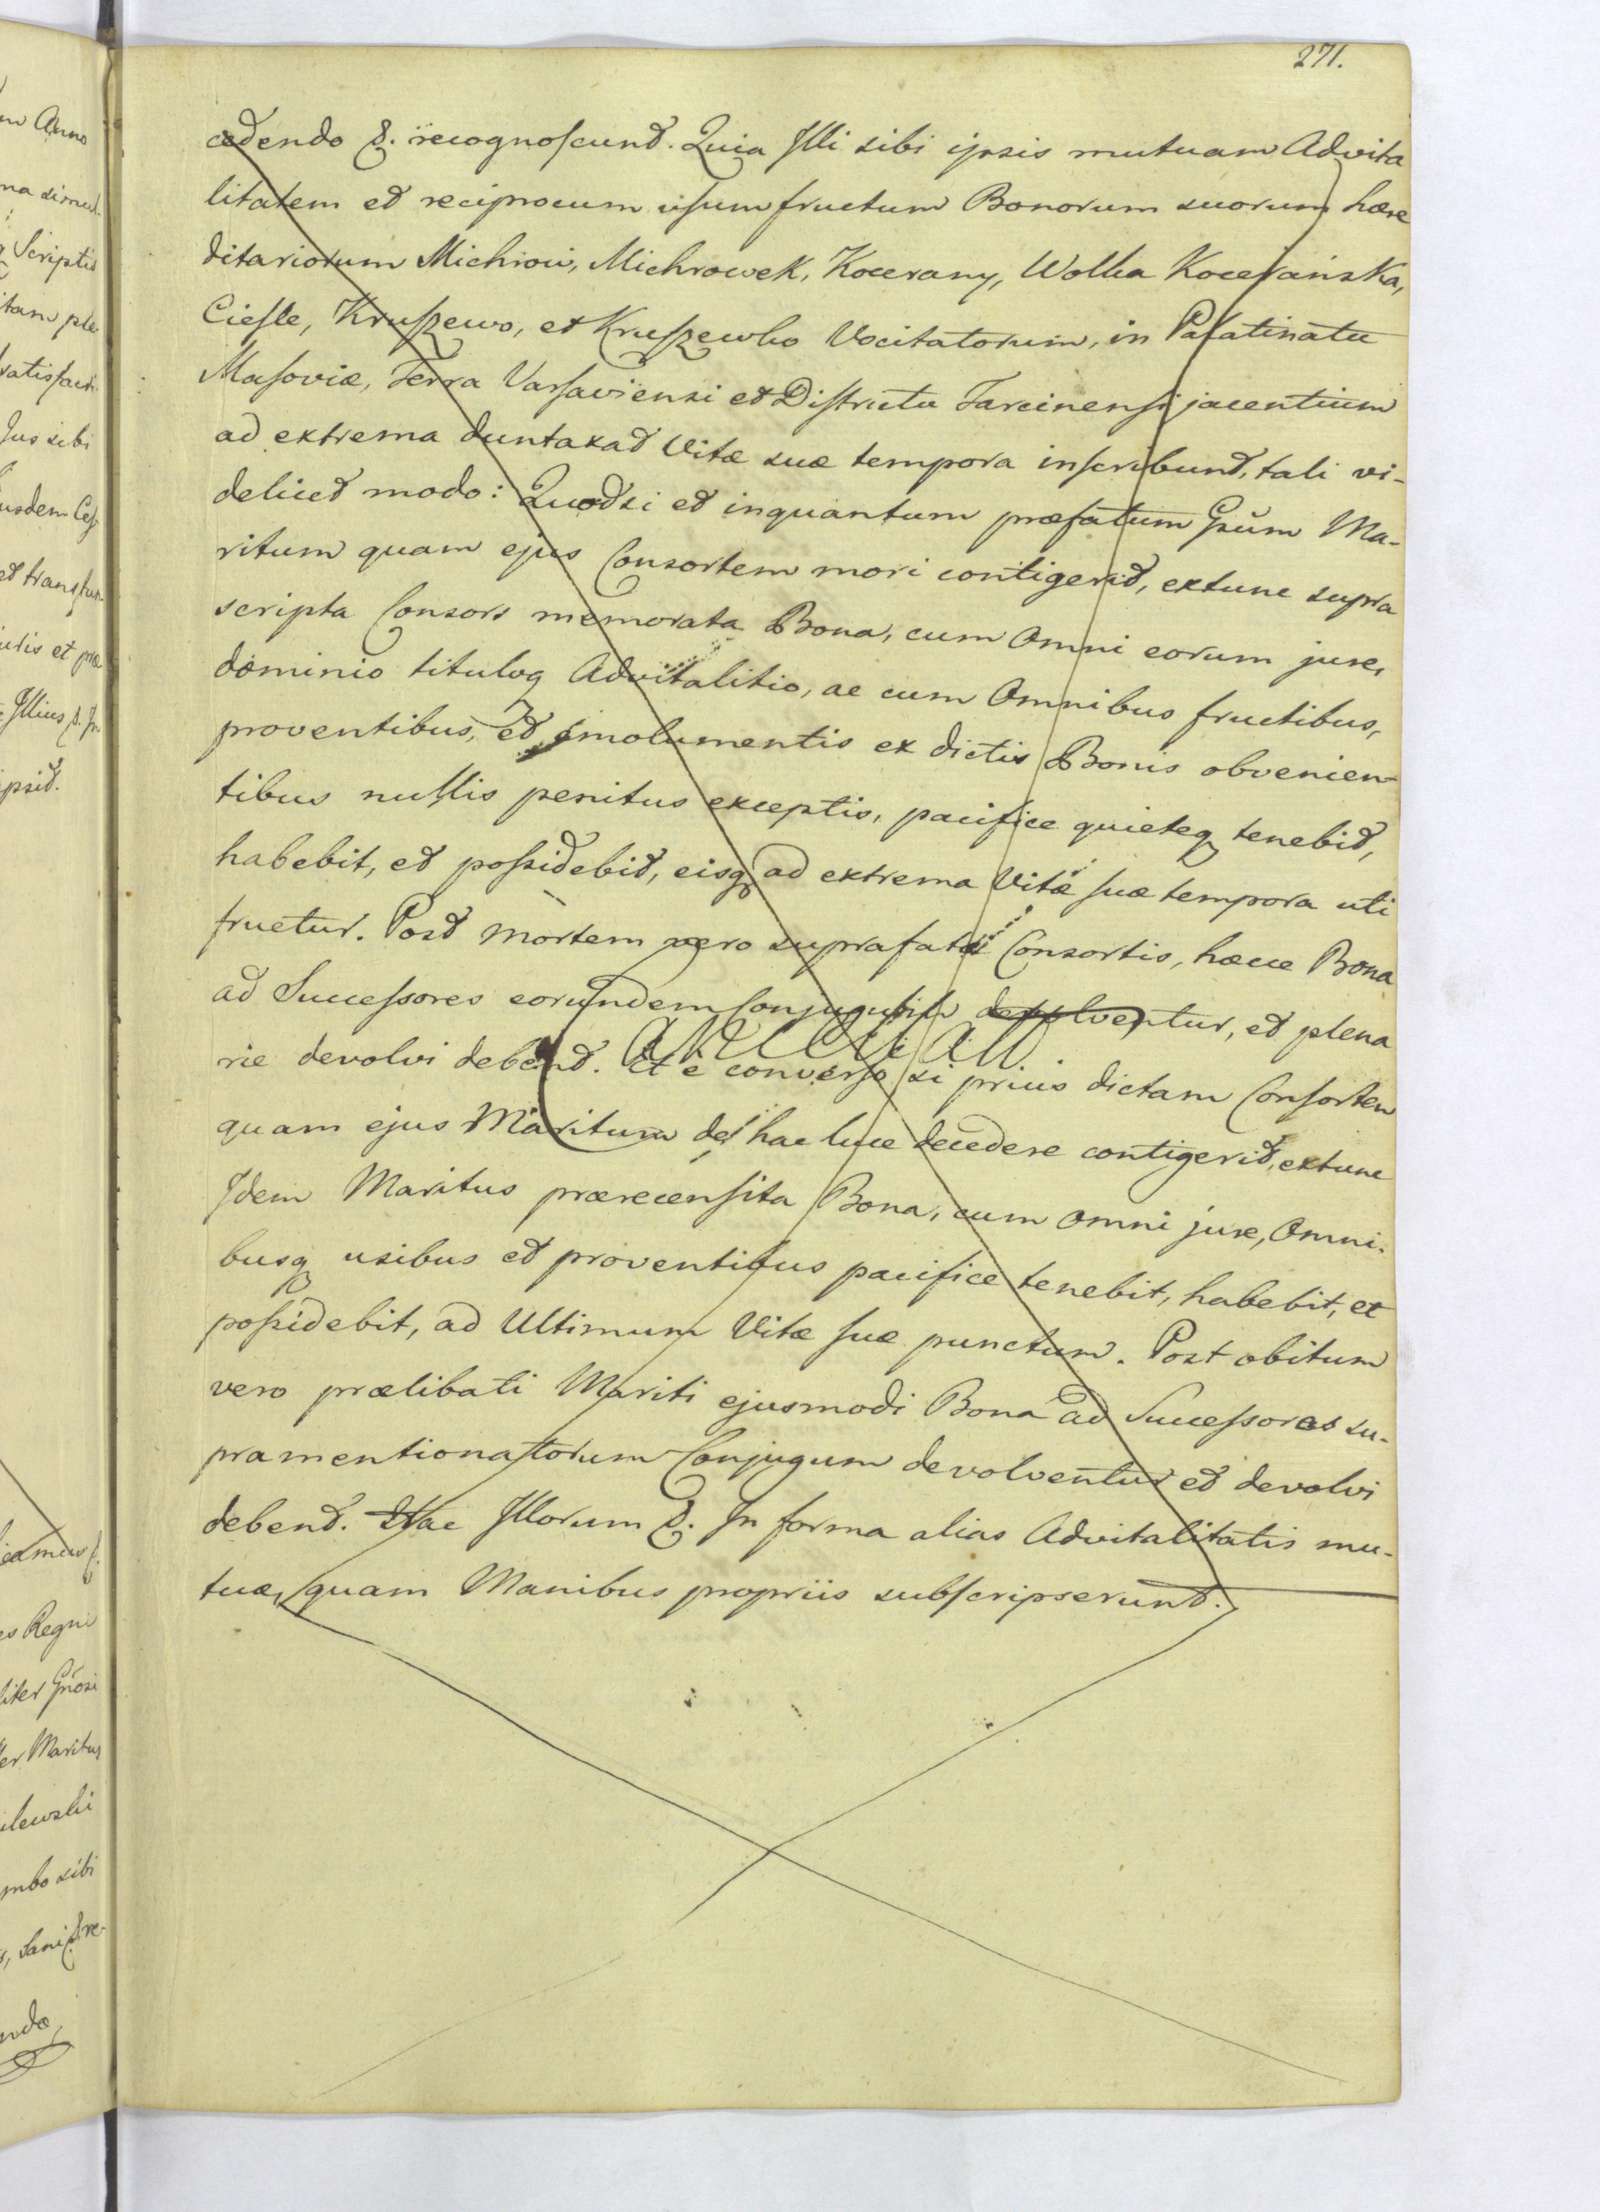 271.
cedendo &. recognoscunt. Quia Illi sibi ipsis mutuam Advita
litatem et reciprocum usumfructum Bonorum suorum hære
ditariorum Michrow, Michrowek, Kocerany, Wolka Kocerańska,
Cieśle, Kruszewo, et Kruszewko Vocitatorum, in Palatinatu
Masoviæ, Terra Varsaviensi et Districtu Tarcinensi jacentium
ad extrema duntaxat Vitæ suæ tempora inscribunt, tali vi-
delicet modo: Quodsi et inquantum præfatum Gsum Ma-
ritum quam ejus Consortem mori contigerit, extunc supra
scripta Consors memorata Bona, cum Omni eorum jure,
dominio tituloq Advitalitio, ac cum Omnibus fructibus,
proventibus, et emolumentis ex dictis Bonis obvenien-
tibus nullis penitus exceptis, pacifice quieteq tenebit,
habebit, et possidebit, eisq ad extrema Vitæ suæ tempora uti
fruetur. Post mortem vero suprafatæ Consortis, hæcce Bona
ad Successores eorundem Conjugum devolventur, et plena
rie devolvi debent. Et e converso si prius dictam Consortem
quam ejus Maritum de hac luce decedere contigerit, extunc
Idem Maritus præcensita Bona, cum Omni jure, Omni-
busq usibus et proventibus pacifice tenebit, habebit, et
possidebit, ad Ultimum Vitæ suæ punctum. Post obitum
vero prælibati Mariti ejusmodi Bona ad Successores su-
pramentionatorum Conjugum devolventur et devolvi
debent. Hac Illorum &. In forma alias Advitalitatis mu-
tuæ, quam Manibus propriis subscripserunt.